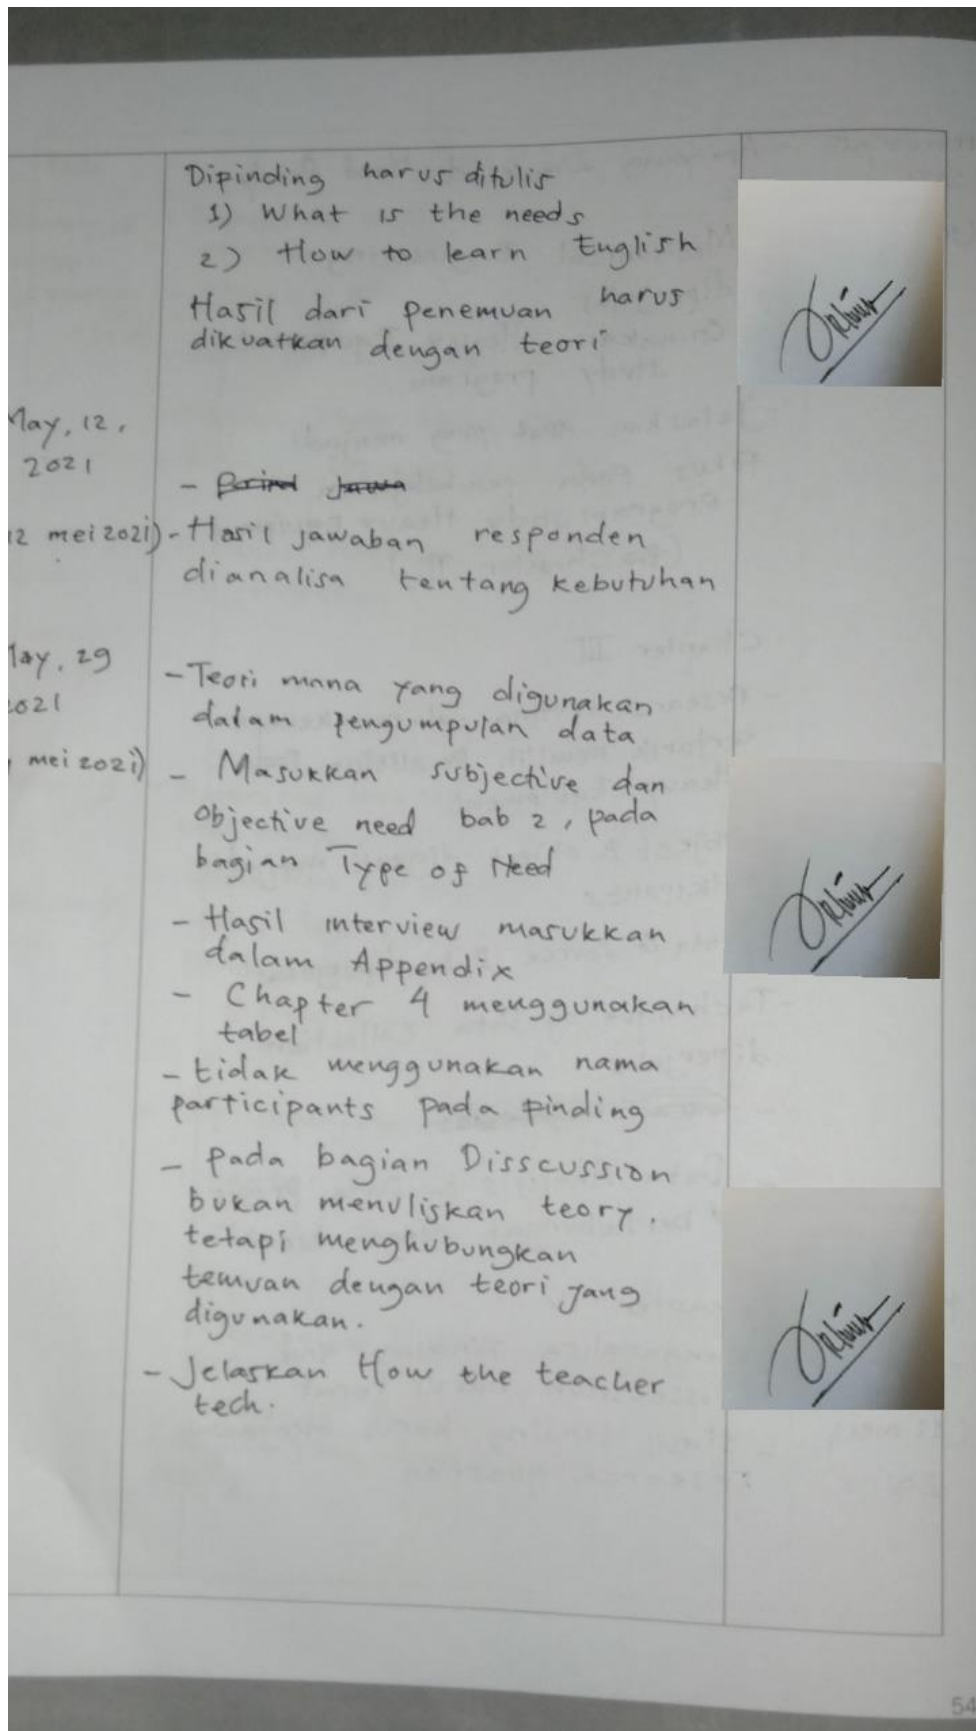 Dipinding harus ditulis
1) What is the needs
2) How to learn English
Hasil dari penemuan harus
dikuatkan dengan teori
May, 12,
2021
12 mei 2021) - Hasil jawaban responden
dianalisa tentang kebutuhan
May, 29
2021
- Teori mana yang digunakan
dalam pengumpulan data
mei 2021) - Masukkan subjective dan
objective need bab 2, pada
bagian Type of Need
- Hasil interview masukkan
dalam Appendix
- Chapter 4 menggunakan
tabel
- tidak menggunakan nama
participants pada pinding
- pada bagian Disscussion
bukan menuliskan teory.
tetapi menghubungkan
temuan dengan teori yang
digunakan.
- Jelaskan How the teacher
tech.
54